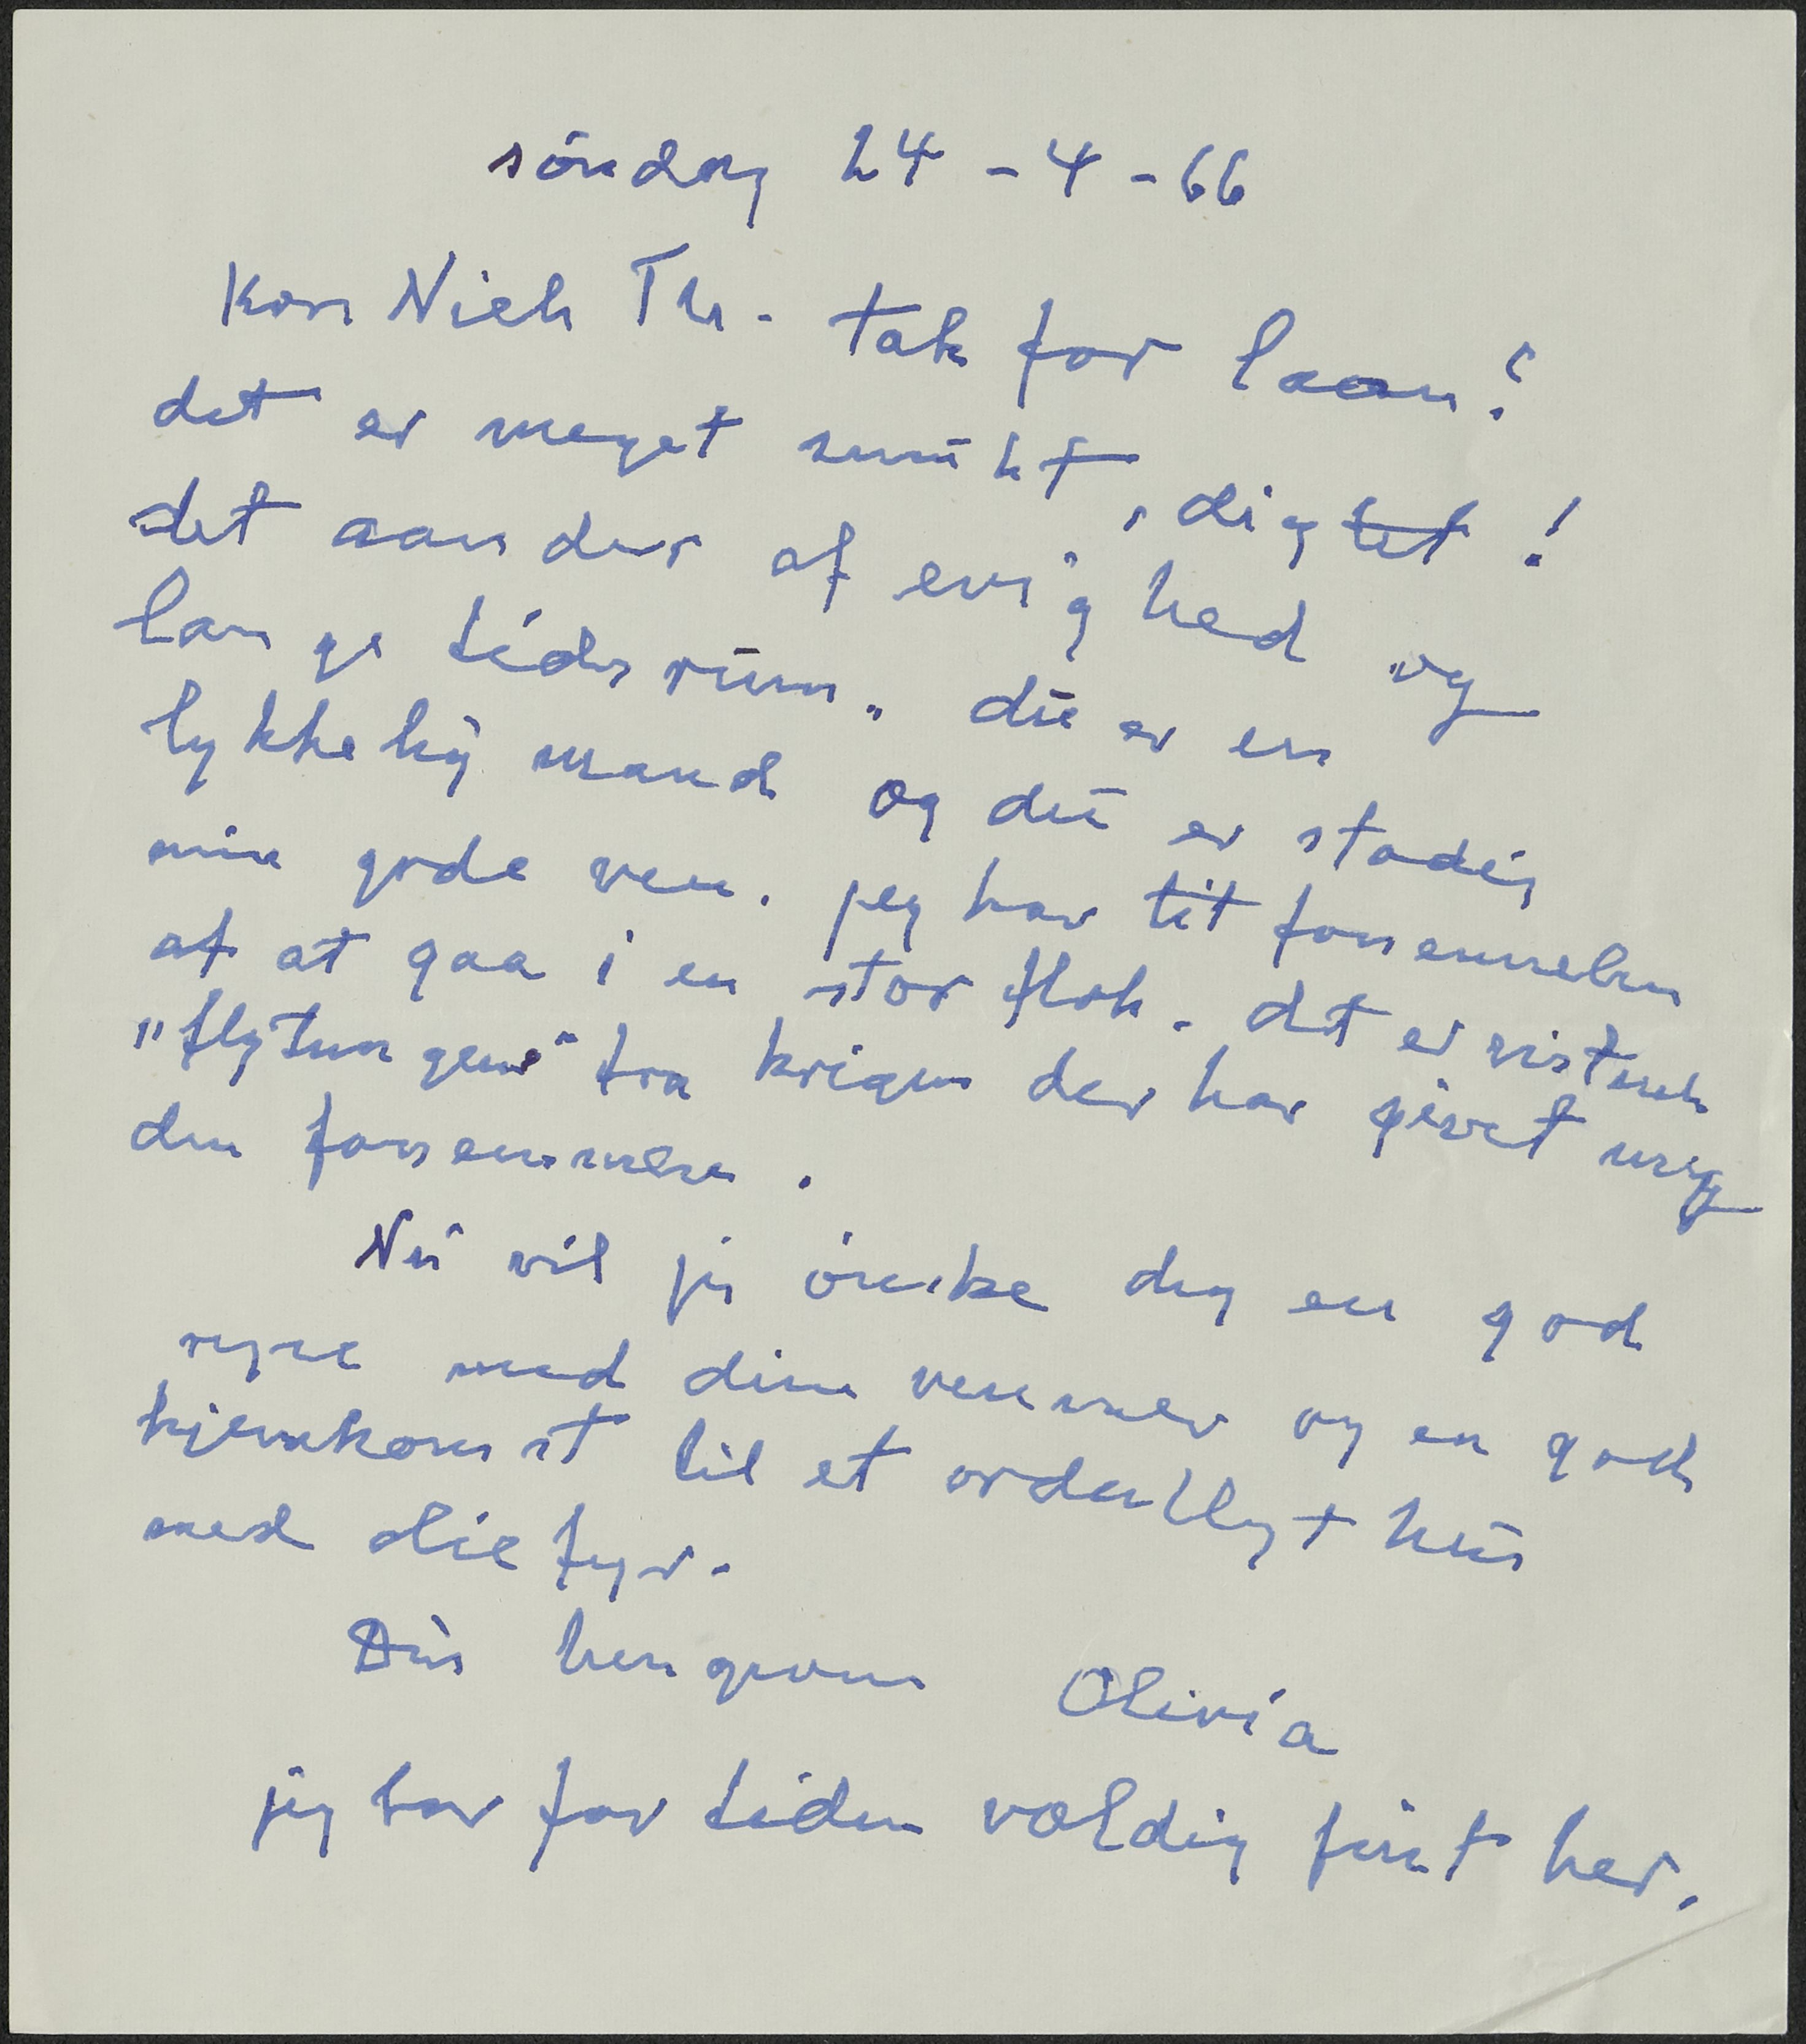 söndag 24-4-66
Kære Niels Th. tak for laan!
det er meget smukt, digtet!
det aander af evighed og
lange tidsrum. du er en
lykkelig mand og du er stadig
min gode ven. jeg har tit fornemmelsen
af at gaa i en stor flok. det er vistnok
"flygtningene" fra krigen der har givet mig
den fornemmelse.
Nu vil jeg önske dig en god
rejse med dine venner og en god
hjemkomst til et ordentligt hus
med oliefyr.
Din hengivne Olivia
jeg har for tiden vældig fint her.